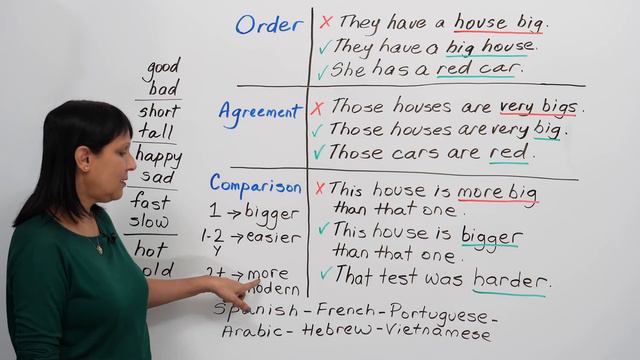 good
bad
short
tall
happy
sad
fast
slow
hot
old
Order
✗ They have a house big.
✓ They have a big house.
✓ She has a red car.
Agreement
✗ Those houses are very bigs.
✓ Those houses are very big.
✓ Those cars are red.
Comparison
1 → bigger
1-2 → easier
y
2+ → more
modern
✗ This house is more big
than that one.
✓ This house is bigger
than that one.
✓ That test was harder.
Spanish - French - Portuguese -
Arabic - Hebrew - Vietnamese